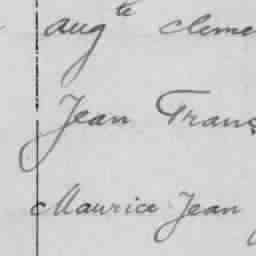 Aug te Cleme
Jean Franç
Maurice Jean